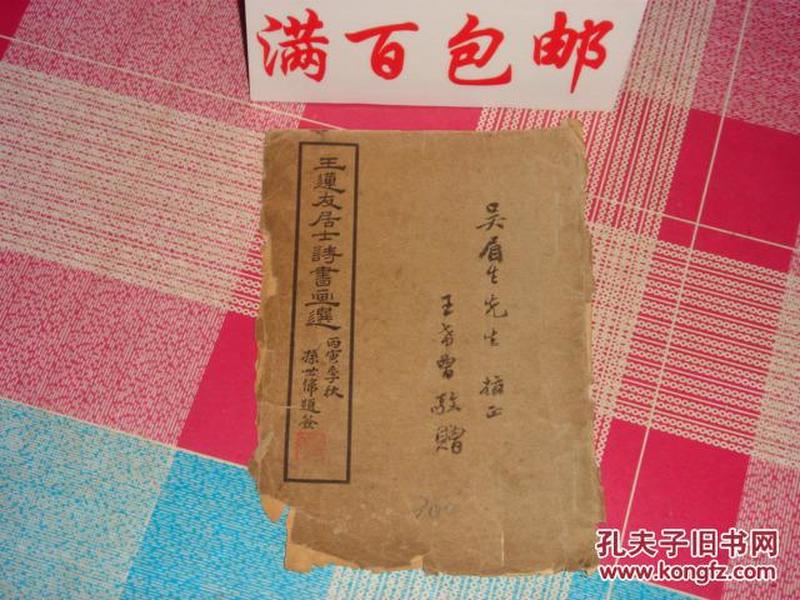 满百包邮
王莲友居士詩書画選
丙寅季秋
孫世偉題簽
吴眉生先生 指正
王希曾敬贈
孔夫子旧书网
www.kongfz.com